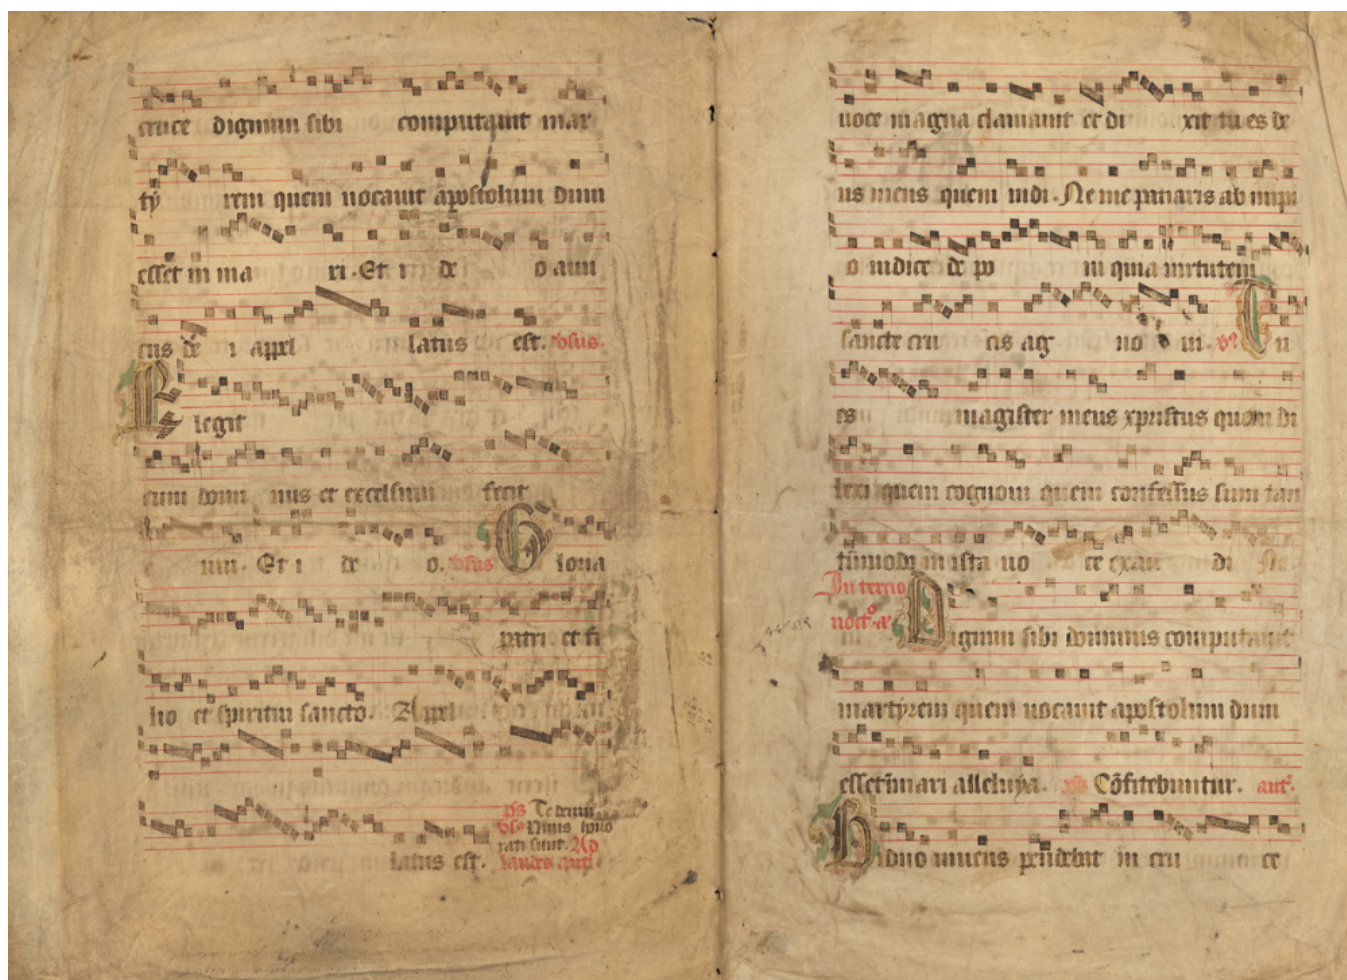 cruce dignum sibi computauit mar
ty rem quem uocauit apostolum dum
esset in ma ri. Et i de o ami
cus de i appel latus est. vsus.
E legit
eum domi nus et excelsum fecit
um. Et i de o. vsus G loria
patri. et fi
lio et spiritui sancto. Appel
latus est.
ps Te deum
vs. Nimis hono
rati sunt. Ad
laudes
uoce magna clamauit et di xit tu es de
us meus quem uidi. Ne me paciaris ab impi
o iudice de po ni quia uirtutem
sancte cru cis ag no ui. v. T u
es magister meus xpristus quem di
lexi quem cognoui quem confessus sum tan
tummodo in ista uo ce exau di Ne.
In tercio
noct. D ignum sibi dominus computauit
martyrem quem uocauit apostolum dum
esset in mari alleluya. ps Cōfitebuntur. ant.
B iduo uiuens pendebat in cru ce